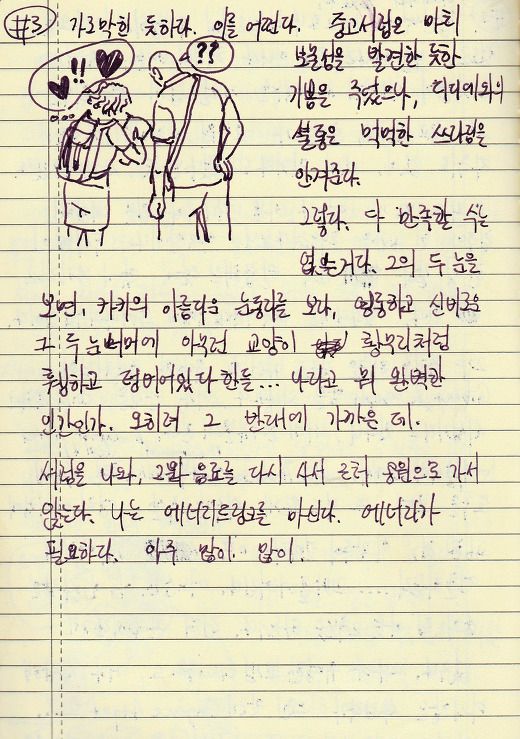 #3 가로막힌 듯하다. 이를 어쩐다. 중고서점은 마치
!! ??
보물섬을 발견한 듯한
기쁨을 주었으나, 디디에와의
불통은 먹먹한 쓰라림을
안겨준다.
그렇다. 다 만족할 수는
없는거다. 그의 두 눈을
보면, 카키의 아름다운 눈동자를 보다, 영롱하고 신비로운
그 두 눈 너머에 아무런 교양이 황무지처럼
휑하고 텅비어있다 한들... 나라고 뭐 완벽한
인간인가. 오히려 그 반대에 가까운 데.
서점을 나와, 그와 음료를 다시 사서 근처 공원으로 가서
앉는다. 나는 에너지드링크를 마신다. 에너지가
필요하다. 아주 많이. 많이.